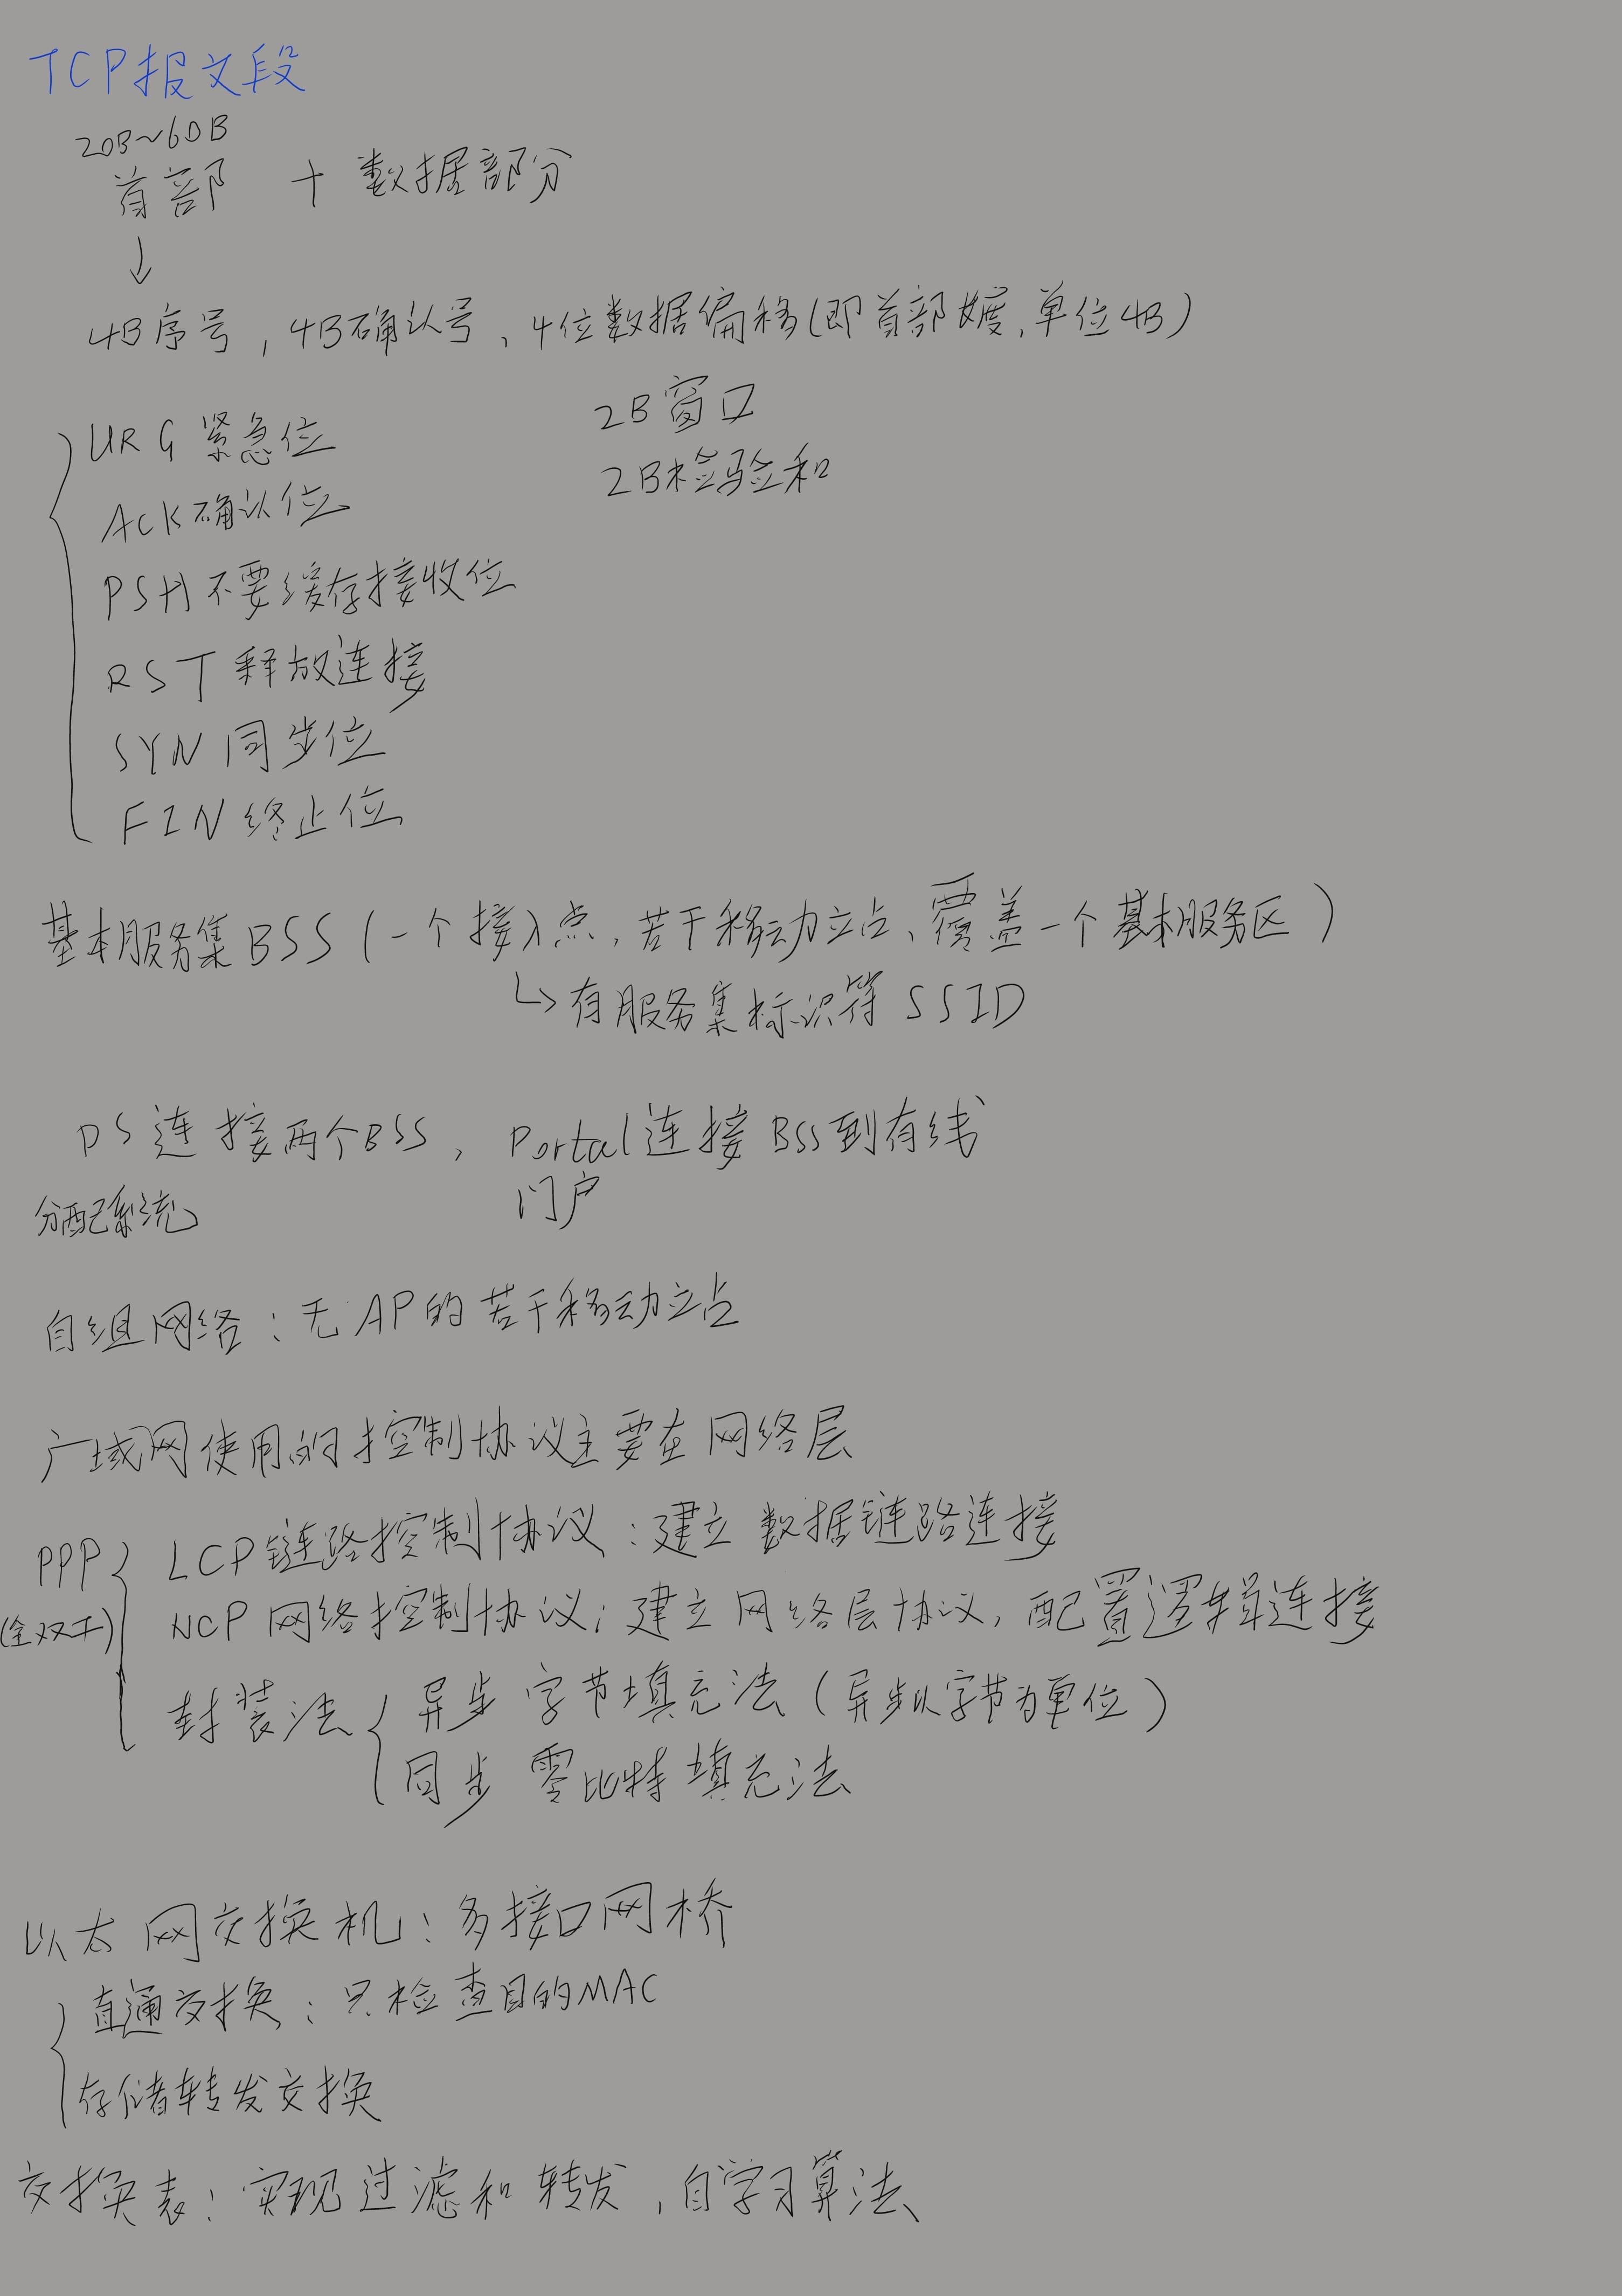 TCP报文段
20B~60B
首部 + 数据部分
↓
4B序号,4B确认号、4位数据偏移(即首部长度,单位4B)
2B窗口
URG 紧急位
2B检验和
ACK确认位
PSH不要缓存接收位
RST 释放连接
SYN 同步位
FIN 终止位
基本服务集BSS(一个接入点,若干移动立占、覆盖一个基本服务区)
↳有服务集标识符 SSID
DS连接两个BSS, Portal连接BSS到有线
分配系统 门户
自组网络:无AP的若干移动立占
广域网使用的控制协议主要在网络层
LCP链路控制协议:建立数据链路连接
PPP
NCP网络控制协议:建立网络层协议,配置逻辑连接
(全双工)
异步 字节填充法(异步以字节为单位)
封装法
同步 零比特填充法
以太网交换机:多接口网桥
直通交换:只检查目的MAC
存储转发交换
交换表:实现过滤和转发,自学习算法